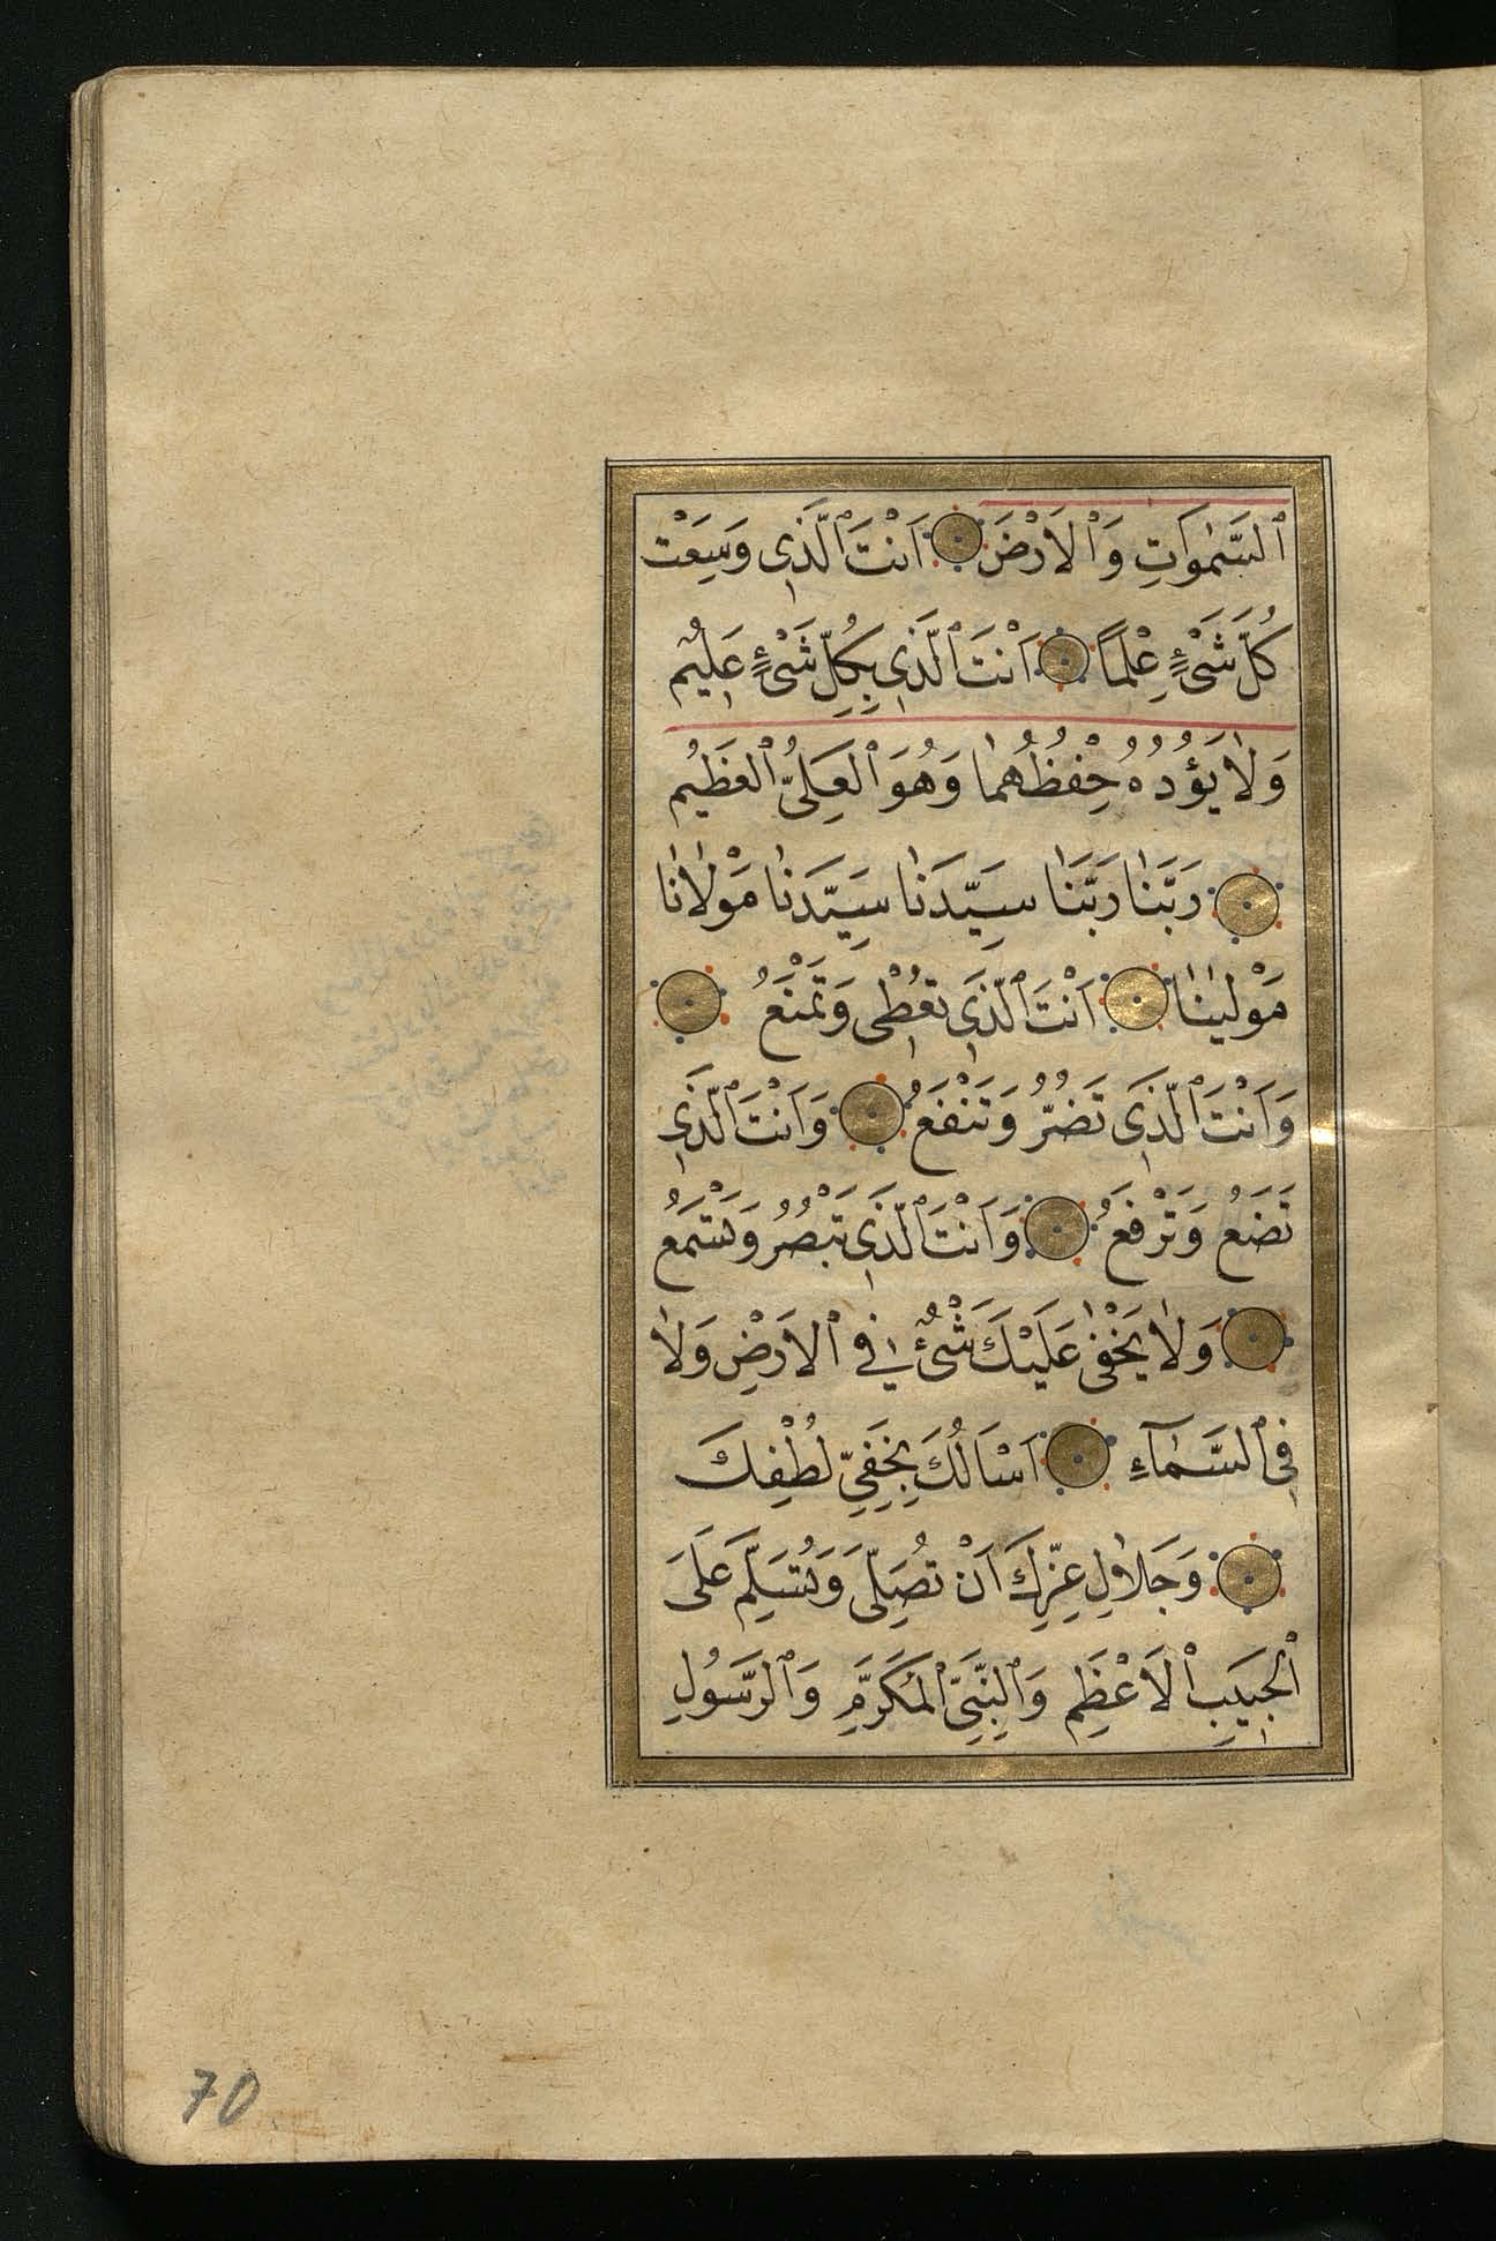 ٱلسَّمٰوَاتِ وَٱلْاَرْضَ اَنْتَ ٱلَّذِى وَسِعَتْ
كُلَّ شَىْءٍ عِلْمًا اَنْتَ ٱلَّذِى بِكُلِّ شَىْءٍ عَلِيمٌ
وَلٰا يَؤُدُهُ حِفْظُهُمٰا وَهُوَ ٱلْعَلِىُّ ٱلْعَظِيمُ
رَبَّنٰا رَبَّنٰا سَيِّدَنٰا سَيِّدَنٰا مَوْلٰانٰا
مَوْلٰينٰا اَنْتَ ٱلَّذِى تُعْطِى وَتَمْنَعُ
وَاَنْتَ ٱلَّذِى تَضُرُّ وَتَنْفَعُ وَاَنْتَ ٱلَّذِى
تَضَعُ وَتَرْفَعُ وَاَنْتَ ٱلَّذِى تَبْصُرُ وَتَسْتَمَعُ
وَلٰا يَخْفٰى عَلَيْكَ شَىْءٌ فِى ٱلْاَرْضِ وَلٰا
فِى ٱلسَّمٰآءِ اَسْاَلُكَ بِخَفِىِّ لُطْفِكَ
وَجَلٰالِ عِزِّكَ اَنْ تُصَلِّىَ وَتُسَلِّمَ عَلَى
ٱلْحَبِيبِ ٱلْاَعْظَمِ وَٱلنَّبِىِّ ٱلْمُكَرَّمِ وَٱلرَّسُولِ
70